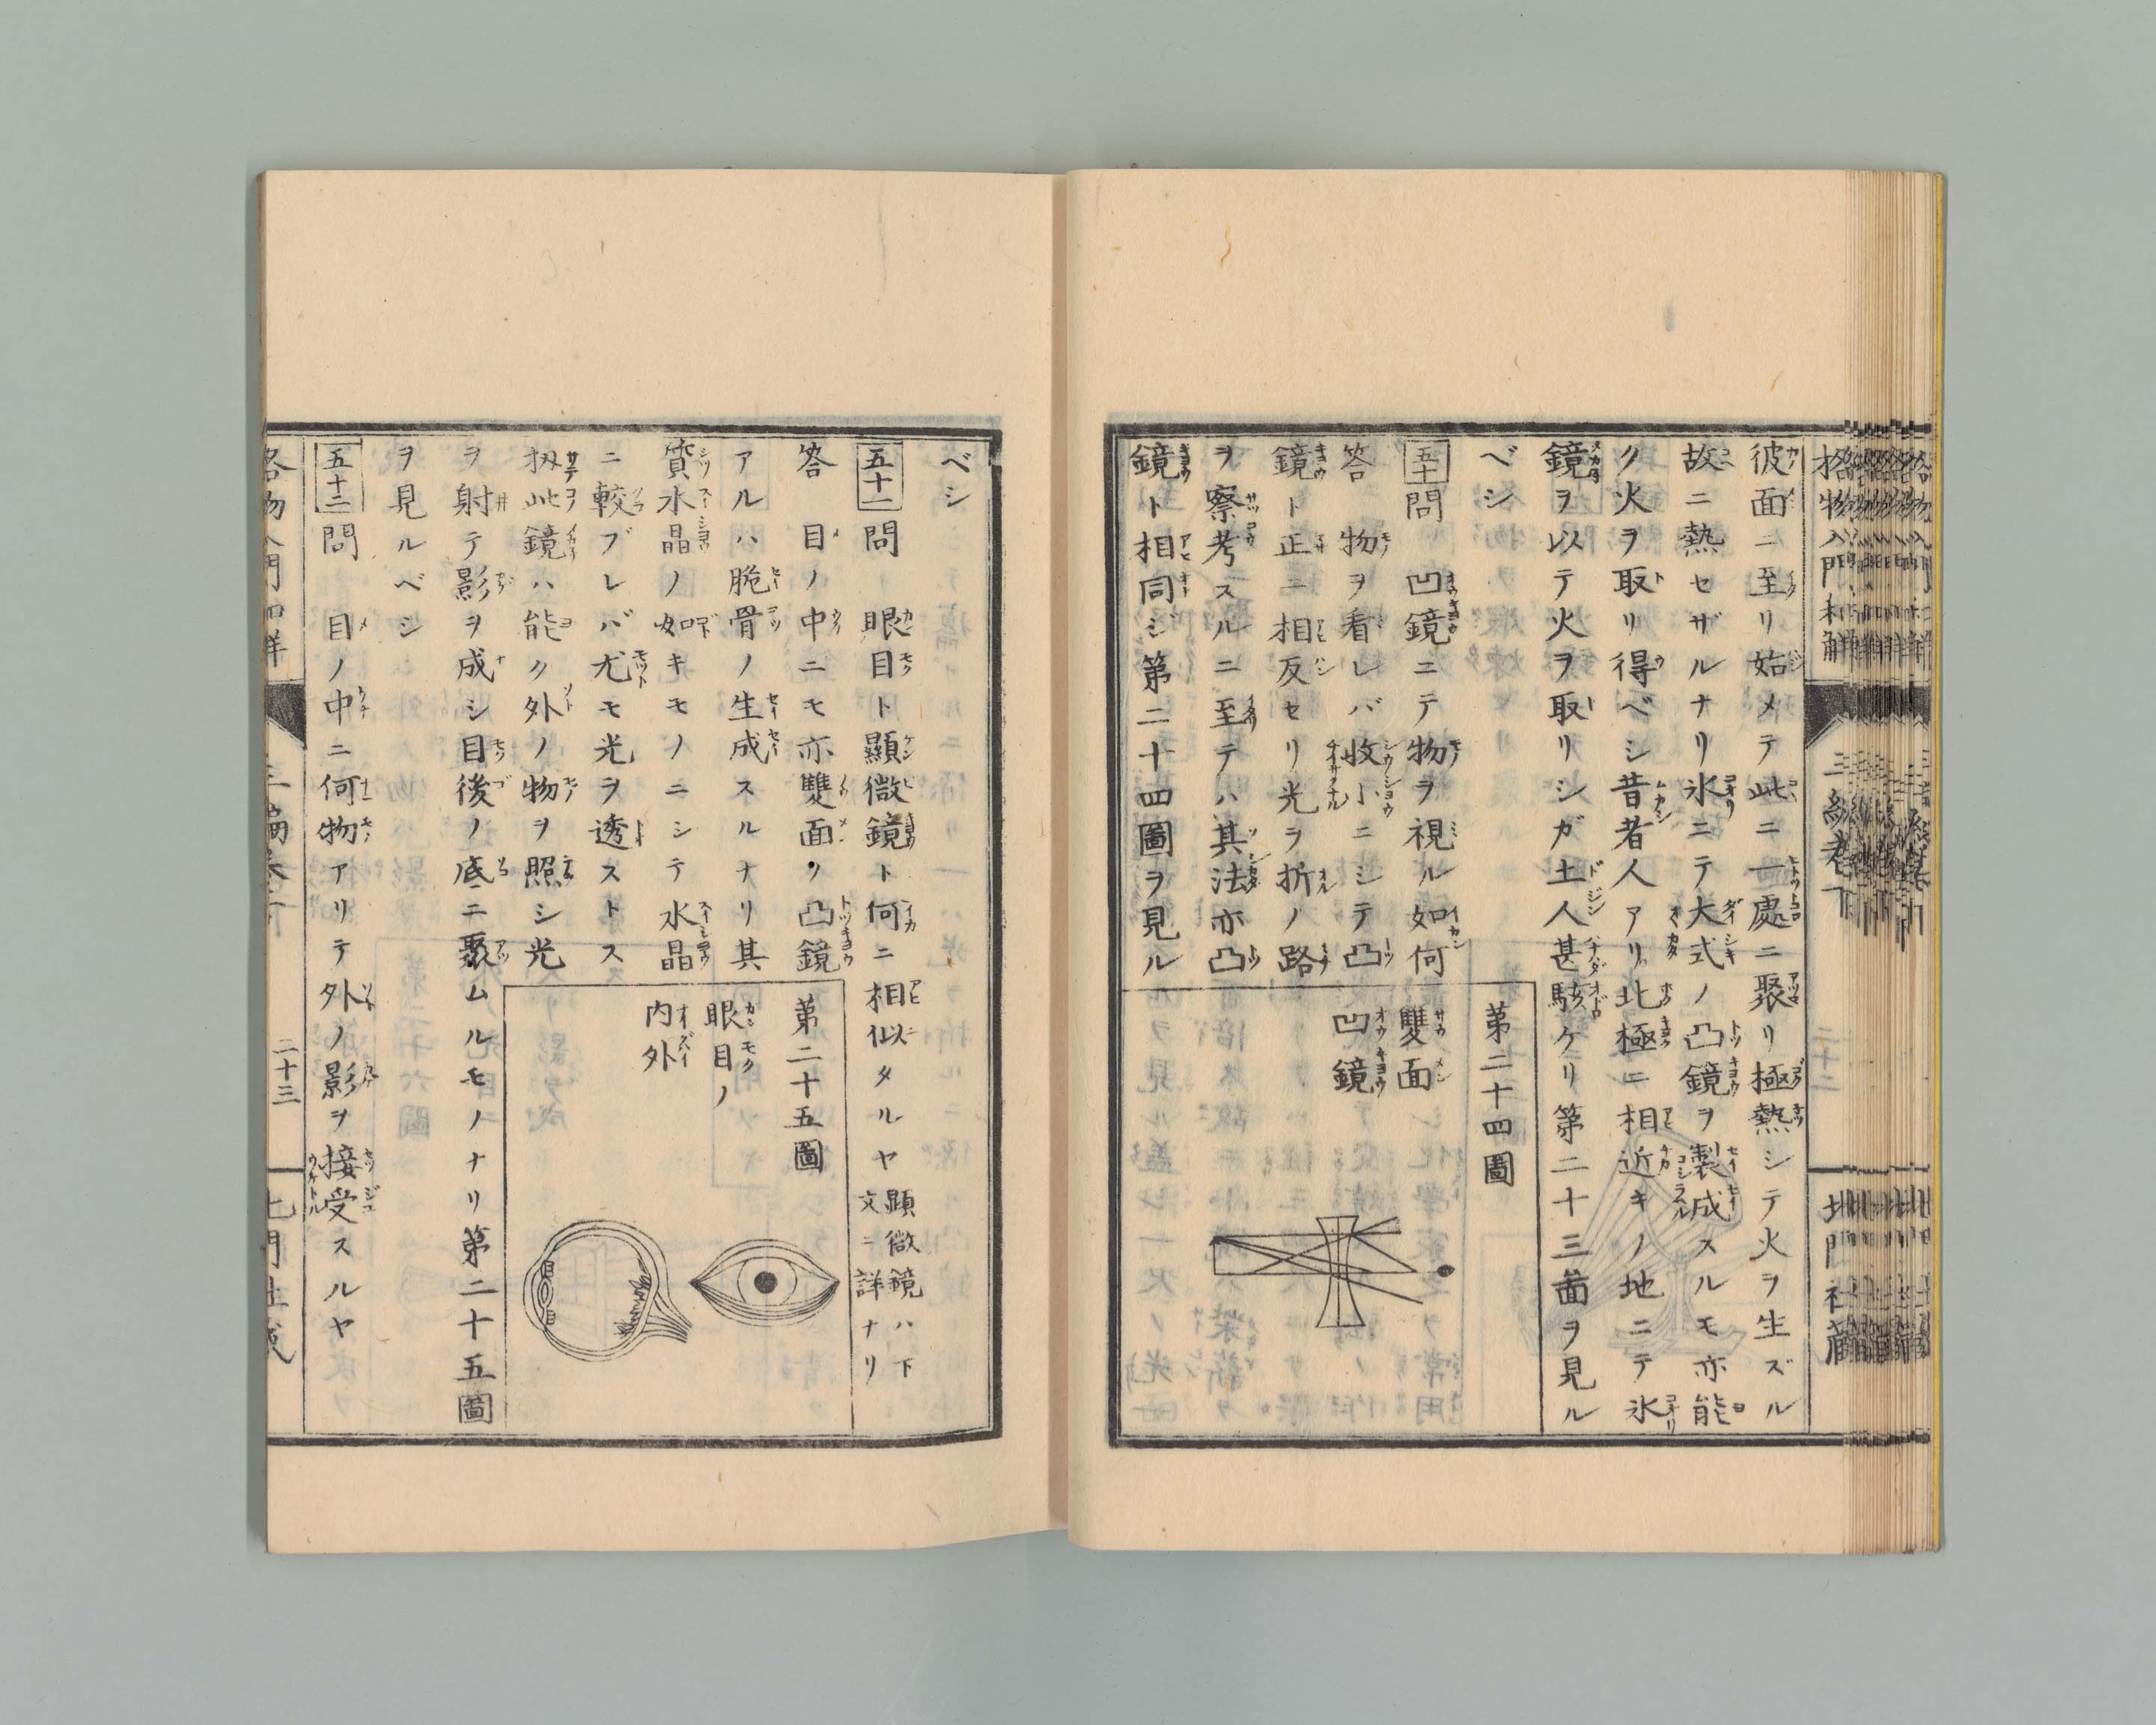 格物入門和解
三編巻下
北門社蔵
彼面ニ至リ始メテ此ニ一處ニ聚リ極熱シテ火ヲ生ズル
故ニ熱セザルナリ氷ニテ大式ノ凸鏡ヲ製成スルモ亦能
ク火ヲ取リ得ベシ昔者人アリ北極ニ相近キノ地ニテ氷
鏡ヲ以テ火ヲ取リシガ土人甚駭ケリ第二十三圖ヲ見ル
ベシ
五十問 凹鏡ニテ物ヲ視ル如何
答 物ヲ看レバ收小ニシテ凸
鏡ト正ニ相反セリ光ヲ折ノ路
ヲ察考スルニ至テハ其法亦凸
鏡ト相同ジ第二十四圖ヲ見ル
第二十四圖
雙面
凹鏡
ベシ
五十一問 眼目ト顯微鏡ト何ニ相似タルヤ 顯微鏡ハ下
文ニ詳ナリ
答 目ノ中ニモ亦雙面ノ凸鏡
アルハ脆骨ノ生成スルナリ其
質水晶ノ如キモノニシテ水晶
ニ較ブレバ尤モ光ヲ透ストス
扨此鏡ハ能ク外ノ物ヲ照シ光
ヲ射テ影ヲ成シ目後ノ底ニ聚ムルモノナリ第二十五圖
ヲ見ルベシ
第二十五圖
眼目ノ
内外
五十二問 目ノ中ニ何物アリテ外ノ影ヲ接受スルヤ
格物入門和解
三編巻下
二十三
北門社蔵